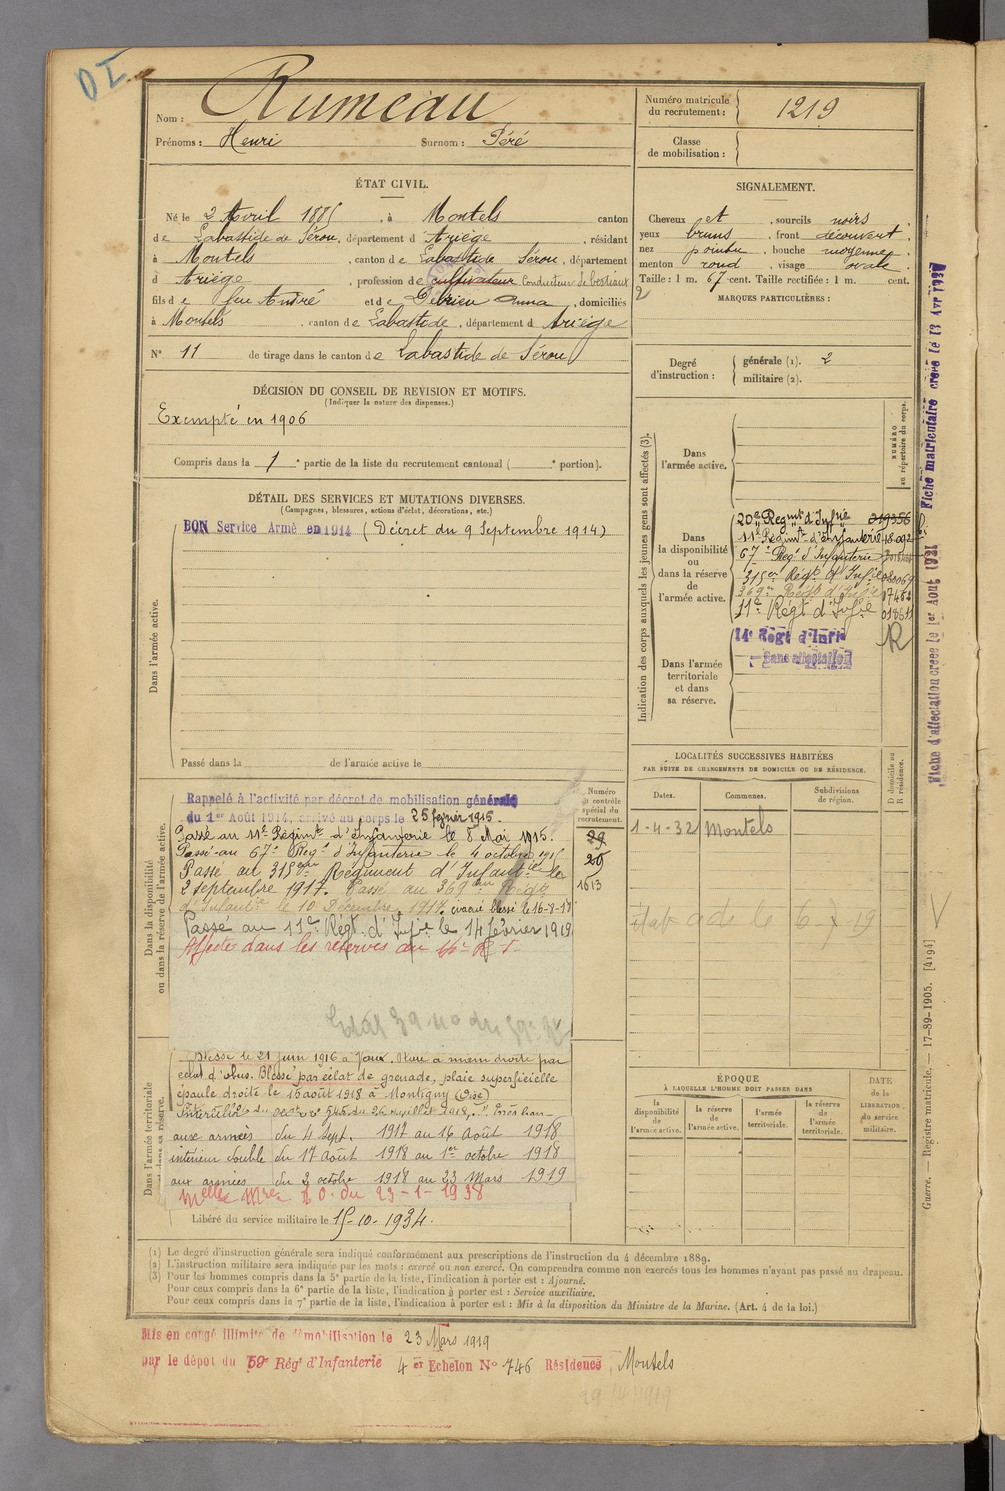 DI
Nom : Rumeau
Prénoms : Henri Surnom : Péré
ÉTAT CIVIL.
Né le 2 Avril 1885, à Montels canton
de Labastide de Sérou, département d'Ariège, résidant
à Montels, canton de Labastide Sérou, département
d Ariège, profession de cultivateur Conducteur de bestiaux
fils de feu André et de Anna, domiciliés
à Montels, canton de Labastide, département d Ariège
N° 11 de tirage dans le canton de Labastide de Sérou
DÉCISION DU CONSEIL DE REVISION ET MOTIFS.
(Indiquer la nature des dispenses.)
Exempté en 1906
Compris dans la 1e partie de la liste du recrutement cantonal ( e portion).
DÉTAIL DES SERVICES ET MUTATIONS DIVERSES.
(Campagnes, blessures, actions d'éclat, décorations, etc.)
BON Service Armé en 1914 (Décret du 9 Septembre 1914)
Dans l'armée active.
Passé dans la de l'armée active le
Dans la disponibilité
ou dans la réserve de l'armée active.
Rappelé à l'activité par décret de mobilisation générale
du 1er Août 1914, arrivé au corps le 25 février 1915.
Passé au 11e Régimt d'Infanterie le 8 Mai 1915.
Passé au 67e Regt d'Infanterie le 4 octobre 1915
Passé au 315ème Régiment d'Infanterie le
2 septembre 1917. Passé au 369ème Régt
d'Infantie le 10 Décembre 1917. évacué blessé le 16-8-18
Passé au 11e Régt d'Infie le 14 février 1919
Affecté dans les réserves au
Numéro
au contrôle
spécial du
recrutement.
29
29
1613
Dans l'armée territoriale
et dans sa réserve.
Blessé le 21 juin 1916 à Vaux. Plaie à main droite par
éclat d'obus. Blessé par éclat de grenade, plaie superficielle
épaule droite le 15 août 1918 à Montigny (Oise)
aux armées du 4 Sept. 1917 au 16 Août 1918
intérieur double du 17 Août 1918 au 1er octobre 1918
aux armées du 2 octobre 1918 au 23 Mars 1919
Melle Mre D. O. du 23-1-1938
Libéré du service militaire le 15-10-1934.
Numéro matricule
du recrutement : 1219
Classe
de mobilisation :
SIGNALEMENT.
Cheveux et, sourcils noirs
yeux bruns, front découvert,
nez pointu, bouche moyenne,
menton rond, visage ovale.
Taille : 1 m. 67 cent. Taille rectifiée : 1 m. cent.
2
MARQUES PARTICULIÈRES :
Degré
d'instruction :
générale (1). 2
militaire (2).
Indication des corps auxquels les jeunes gens sont affectés (3).
NUMÉRO
au répertoire du corps.
Dans
l'armée active.
Dans
la disponibilité
ou
dans la réserve
de
l'armée active.
20e Regmt d'Infrie 019356
11e Régimt d'Infanterie 18.092
67e Regt d'Infanterie
315er Régt d'Infie
369e Régt d'Infie
11e Régt d'Infie
R
Dans l'armée
territoriale
et dans
sa réserve.
14e Régt d'Infie
Sans affectation
LOCALITÉS SUCCESSIVES HABITÉES
PAR SUITE DE CHANGEMENTS DE DOMICILE OU DE RÉSIDENCE.
Dates. Communes. Subdivisions
de région.
D domicile ou
R résidence.
1-4-32 Montels
ÉPOQUE
À LAQUELLE L'HOMME DOIT PASSER DANS
la
disponibilité
de
l'armée active.
la réserve
de
l'armée active.
l'armée
territoriale.
la réserve
de
l'armée
territoriale.
DATE
de la
LIBÉRATION
du service
militaire.
(1) Le degré d'instruction générale sera indiqué conformément aux prescriptions de l'instruction du 4 décembre 1889.
(2) L'instruction militaire sera indiquée par les mots : exercé ou non exercé. On comprendra comme non exercés tous les hommes n'ayant pas passé au drapeau.
(3) Pour les hommes compris dans la 5e partie de la liste, l'indication à porter est : Ajourné.
Pour ceux compris dans la 6e partie de la liste, l'indication à porter est : Service auxiliaire.
Pour ceux compris dans la 7e partie de la liste, l'indication à porter est : Mis à la disposition du Ministre de la Marine. (Art. 4 de la loi.)
Mis en congé illimité de démobilisation le 23 Mars 1919
par le dépôt du 59e Régt d'Infanterie 4er Echelon N° 746 Résidence, Montels
29/4/1919
Fiche d'affectation créée le 1er Août 1931 Fiche matriculaire créée le 13 Avr 1937
Guerre. — Registre matricule. — 17-89-1905. [4194]